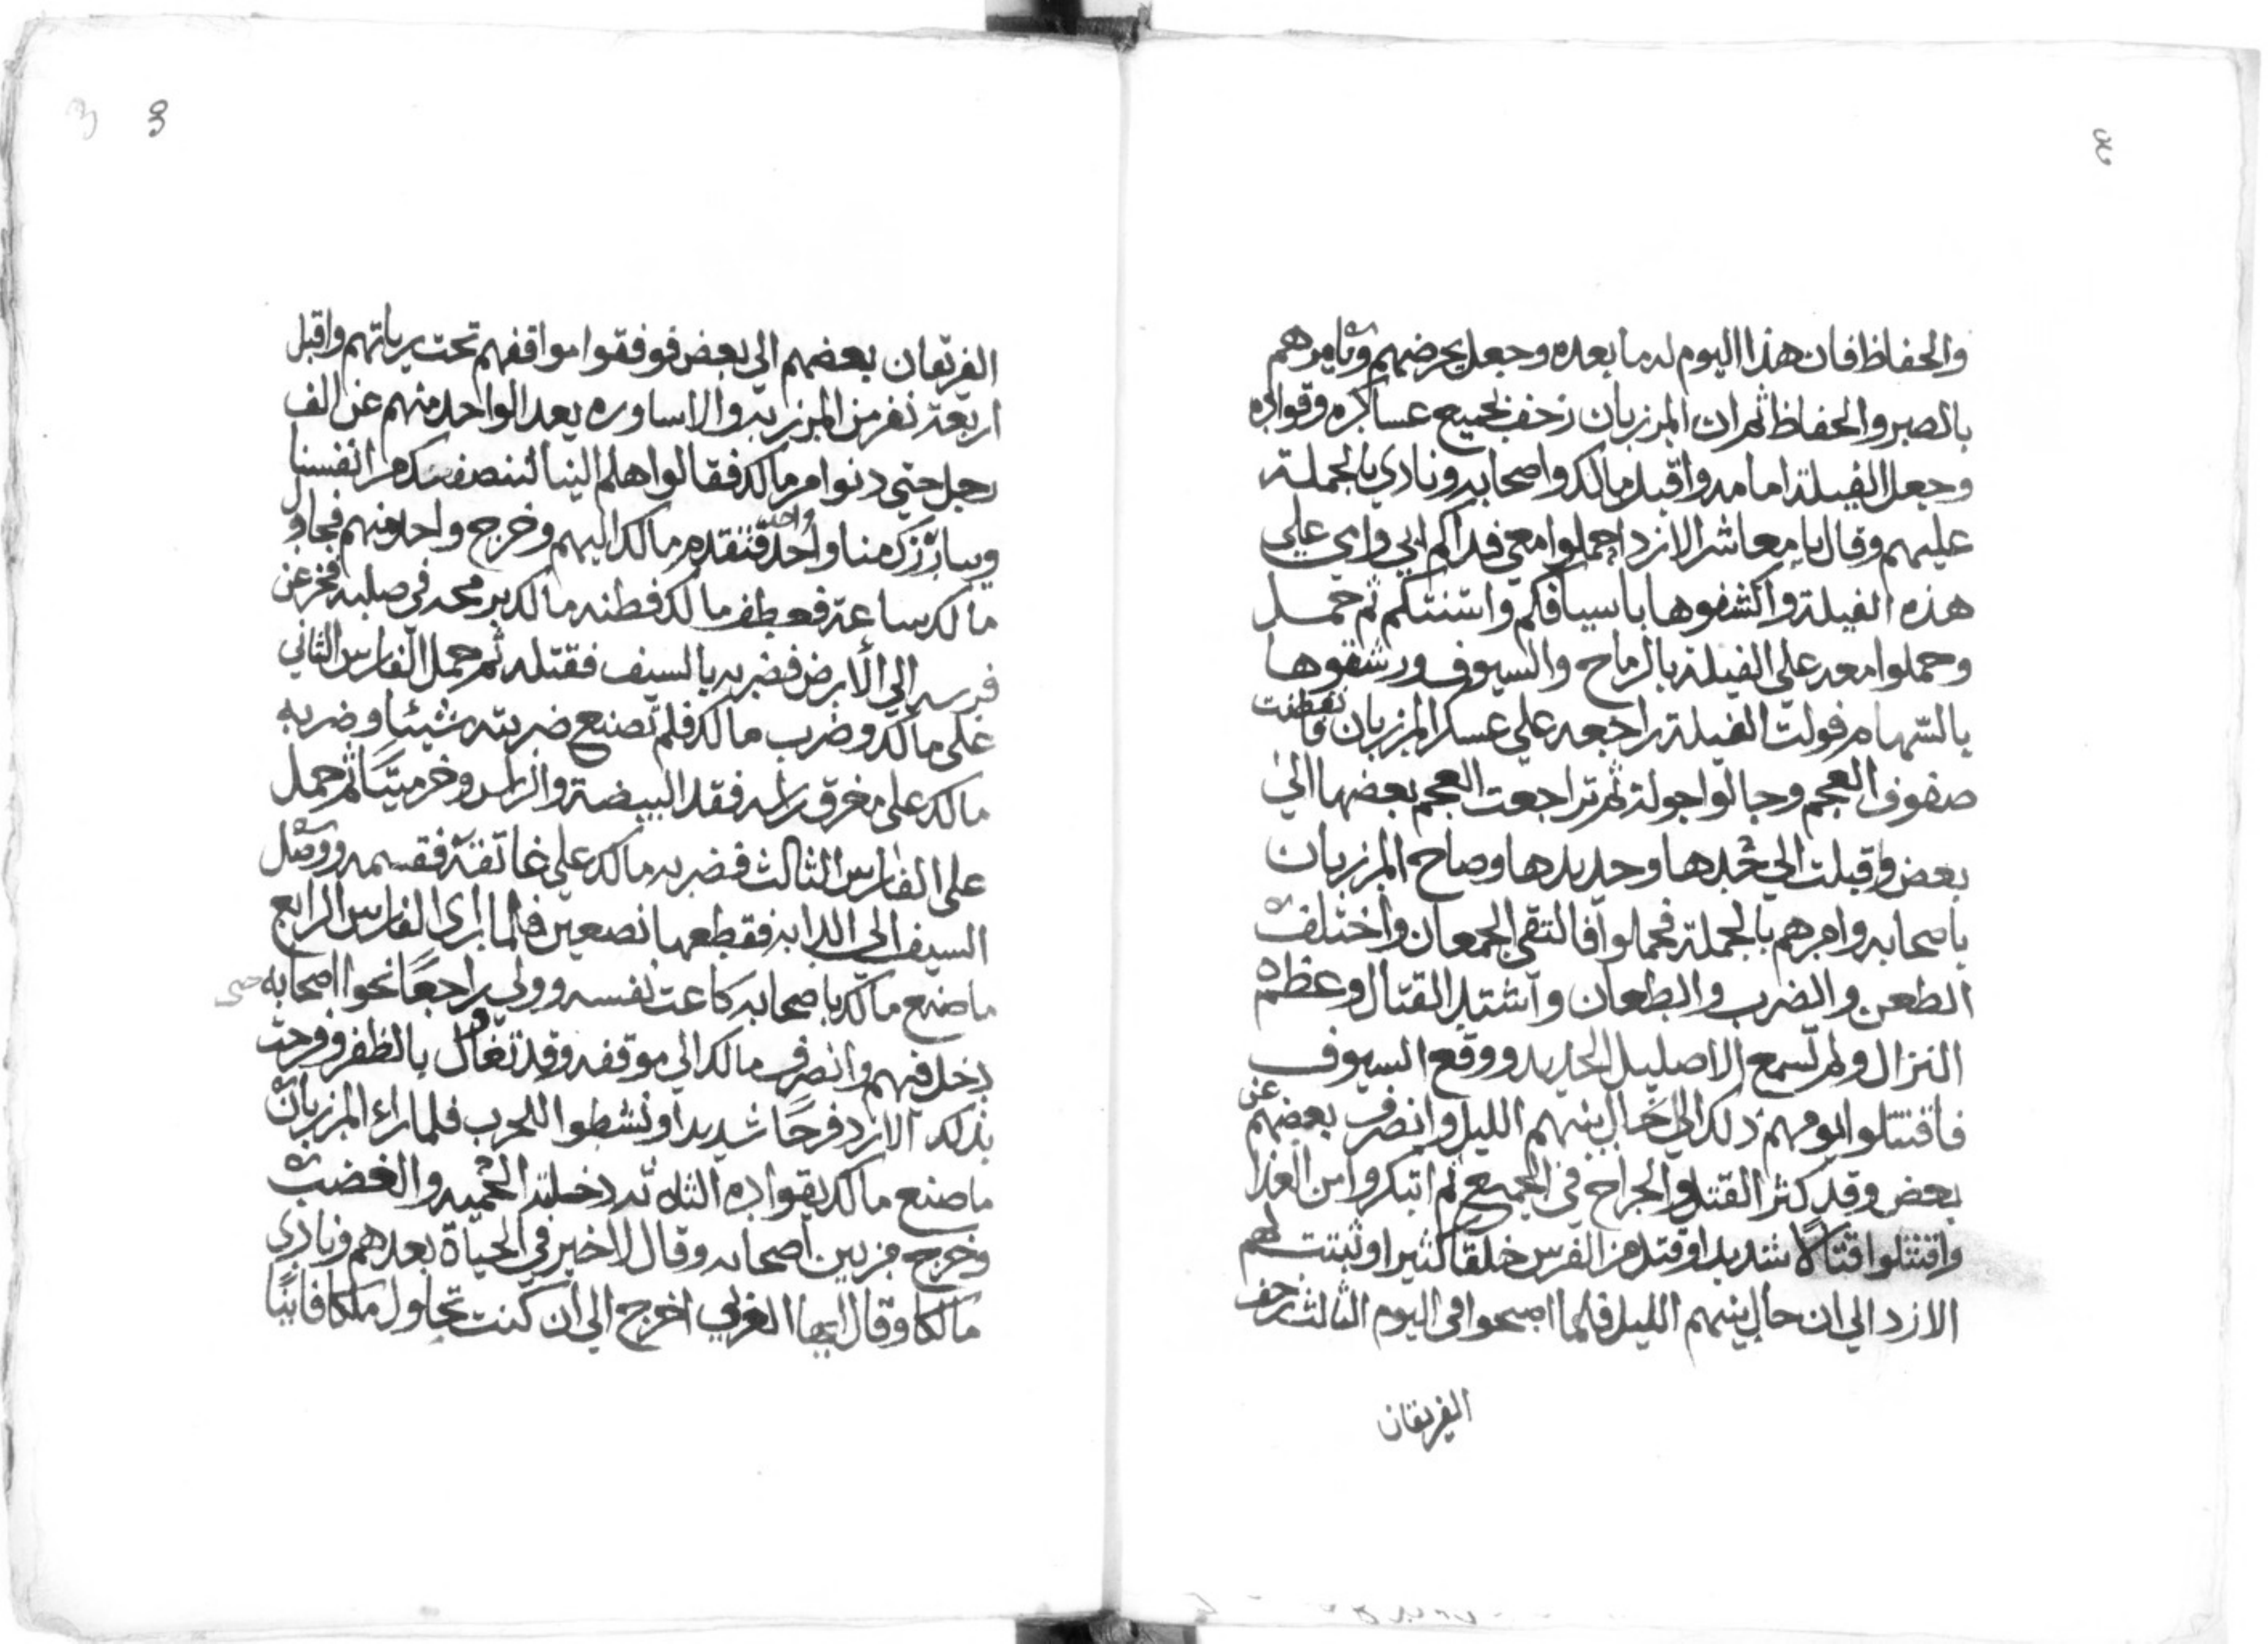 والحفاظ فان هذا اليوم له ما بعده وجعل يحرضهم ويامرهم
بالصبر والحفاظ ثم ان المرزبان زحف بجميع عساكره وقواده
وجعل الفيلة امامه واقبل مالك واصحابه ونادي بالجملة
عليهم وقال يا معاشر الازد احملوا معي فداكم ابي وامي علي
هذه الفيلة واكشفوها باسيافكم واسنتكم ثم حمل
وحملوا معه علي الفيلة بالرماح والسيوف ورشقوها
بالسهام فولت الفيلة راجعه علي عسكر المرزبان
صفوف العجم وجالوا جولة ثم تراجعت العجم بعضها الي
بعض واقبلت الي حدها وحديدها وصاح المرزبان
باصحابه وامرهم بالجملة فحملوا فالتقي الجمعان واختلف
الطعن والضرب والطعان واشتد القتال وعظم
النزال ولم تسمع الا صليل الحديد ووقع السيوف
فاقتتلوا يومهم ذلك الي حال بينهم الليل وانصرف بعضهم عن
بعض وقد كثر القتل والجراح في الجميع ثم ابتكروا من الغدا
واقتتلوا قتالًا شديدا وقتل من الفرس خلقا كثيرا وثبتت لهم
الازد الي ان حال بينهم الليل فلما اصبحوا في اليوم الثالث زحف
الفريقان
الفريقان بعضهم الي بعض فوفقوا مواقفهم تحت راياتهم واقبل
اربعة نفر من المرزبه والاساوره يعد الواحد منهم عن الف
رجل حتي دنوا من مالك فقالوا هلم الينا لننصفك من انفسنا
ويبارزك منا واحد واحد فتقدم مالك اليهم وخرج واحد منهم فجاول
مالك ساعة فعطف مالك فطنه مالك برمحه في صلبه فخر عن
فرسه الي الأرض فضربه بالسيف فقتله ثم حمل الفارس الثاني
علي مالك وضرب مالك فلم تصنع ضربته شيئا وضربه
مالك علي مفرق راسه فقد البيضة والراس وخر ميتًا ثم حمل
علي الفارس الثالث فضربه مالك علي عاتقه فقسمه ووصل
السيف الي الدابه فقطعها نصعين فلما راي الفارس الرابع
ما صنع مالك باصحابه كاعت نفسه وولي راجعًا نحوا اصحابه حتى
دخل فيهم وانصرف مالك الي موقفه وقد تفال بالظفر وفرحت
بذلك الازد فرحًا شديدا ونشطوا للحرب فلما راء المرزبان
ما صنع مالك بقواده الثلاثه دخلته الحميه والغضب
وخرج من بين اصحابه وقال لا خير في الحياة بعدهم ونادي
مالكا وقال ايها العربي اخرج الي ان كنت تحاول ملكا فاينا